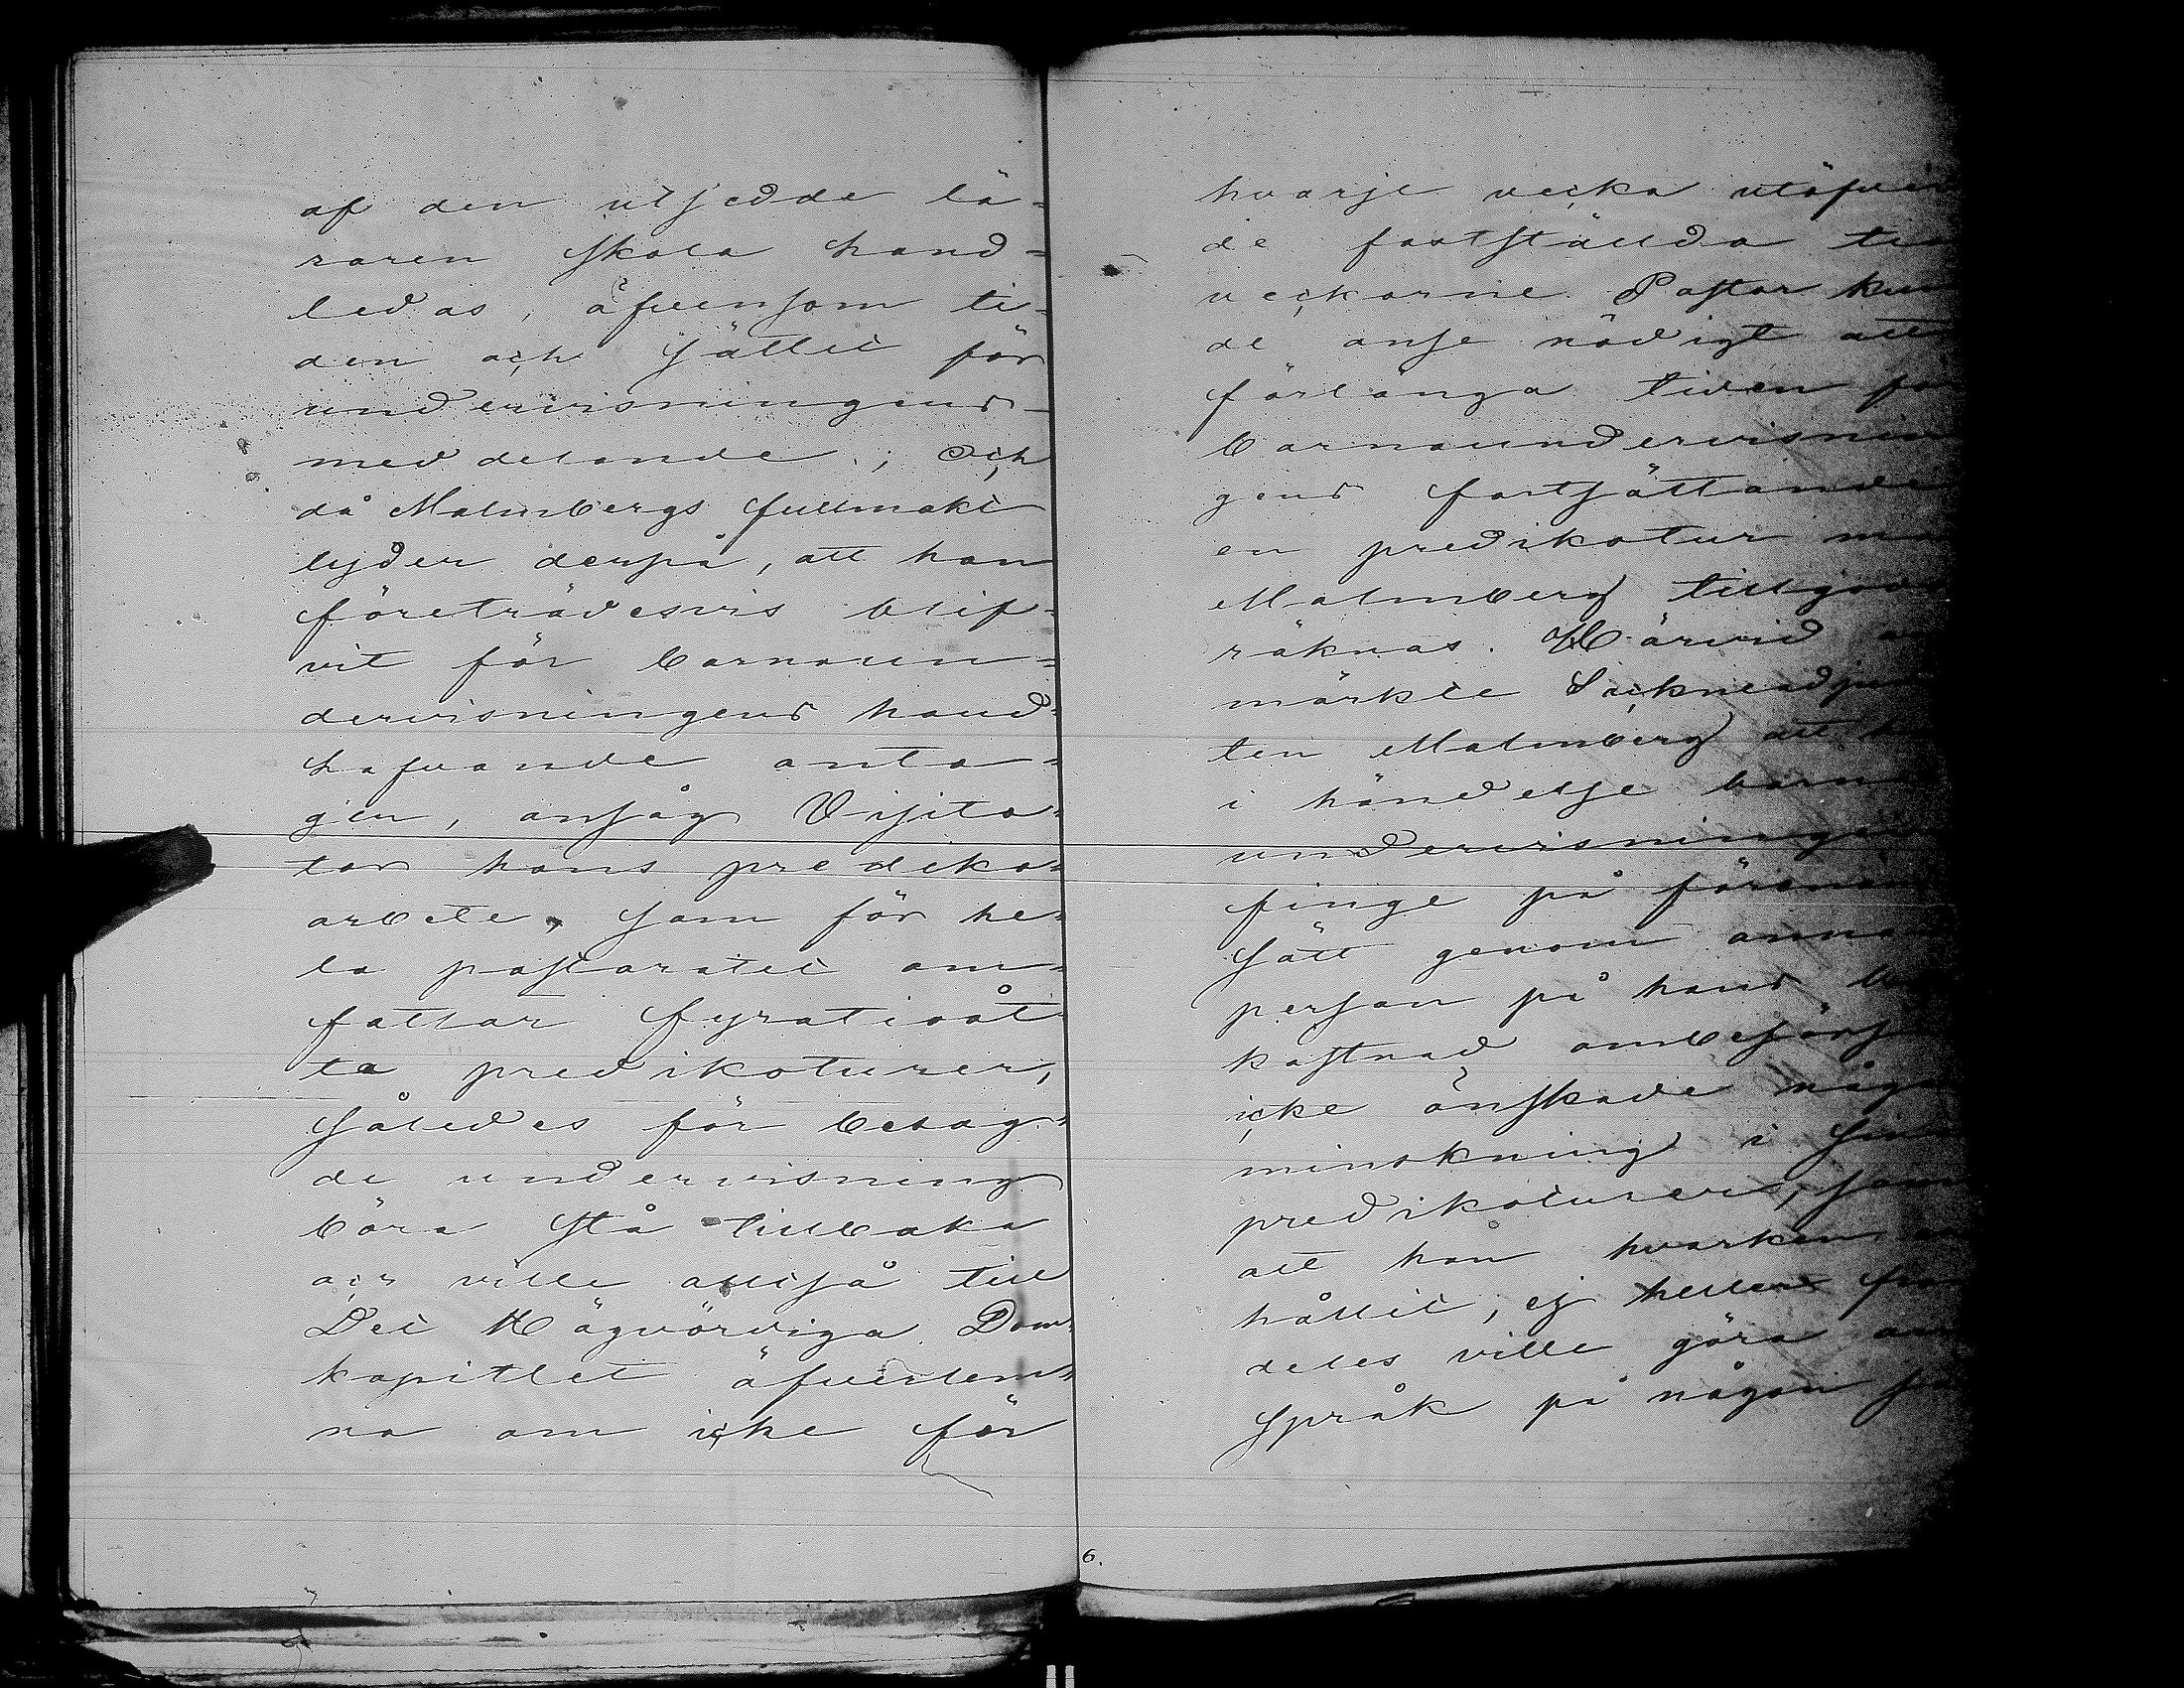 af den utsedde lä-
raren skola hand-
ledas, äfvensom ti-
den och sättet för
undervisningens
meddelande; Och
då Malmbergs fullmakt
lyder derpå, att han
företrädesvis blif-
vit för barnaun-
dervisningens hand-
hafvande anta-
gen, ansåg Visita-
tor hans prediko-
arbete, som för he-
la pastoratet om-
fattar fyratioåt-
ta predikoturer,
således för besag-
de undervisning
böra stå tillbaka
och ville alltså till
Det Högvördiga Dom-
kapitlet öfverlem-
na om icke för
hvarje vecka utöfver
de fastställda
veckorne Pastor kun
de anse nödigt att
förlänga tiden för
barnaundervisnin
gens fortsättande
en predikotur må
Malmberg tillgodo
räknas. Härvid an
märkte Sockneadjunk
ten Malmberg att
i händelse barna
undervisningen
finge på förenämn
sätt genom annan
person på hans be
kostnad ombesörjas
icke önskade någon
minskning i sina
predikoturer, samt
att han hvarken an
hållit, ej heller fram
deles ville göra an
språk på någon
6.